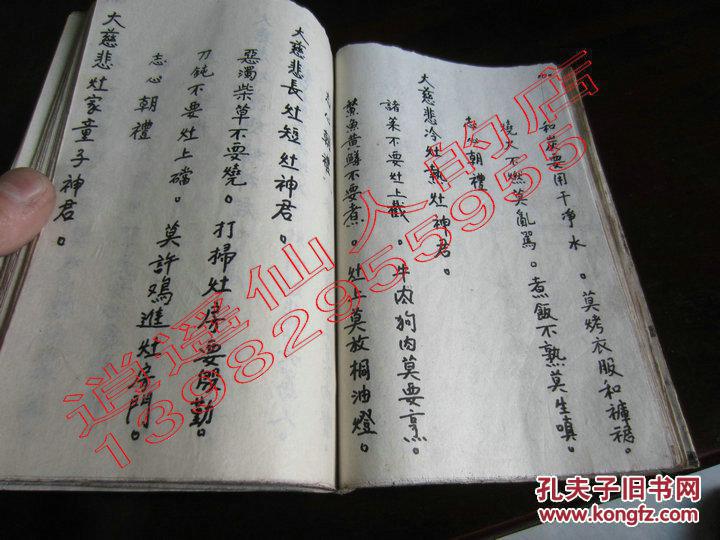 和炭要用干净水。莫烤衣服和褲裙。
燒火不燃莫亂罵。煮飯不熟莫生嗔。
志心朝禮
大慈悲冷灶熱灶神君。
諸菜不要灶上截。牛肉狗肉莫要烹。
黃魚黄鱓不要煮。灶上莫放桐油燈。
志心朝禮
大慈悲長灶短灶神君。
惡濁柴草不要燒。打掃灶房要殷勤。
刀鈍不要灶上礑。莫許鸡進灶房門。
志心朝禮
大慈悲灶家童子神君。
逍遥仙人的店
13982955955
孔夫子旧书网
www.kongfz.com